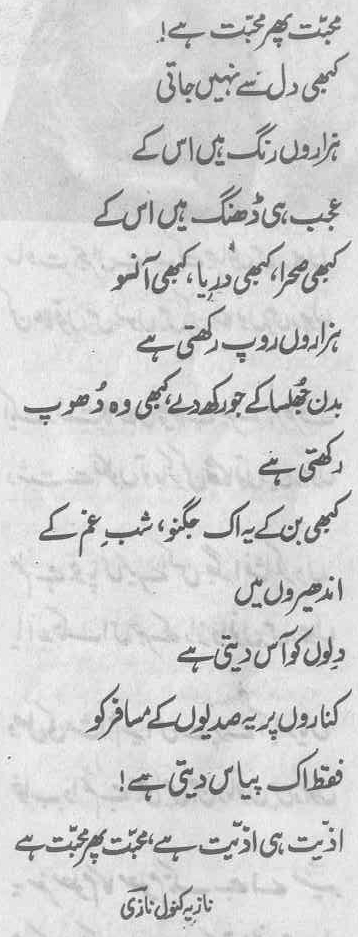 محبّت پھر محبّت ہے!
کبھی دل سے نہیں جاتی
ہزاروں رنگ ہیں اس کے
عجب ہی ڈھنگ ہیں اس کے
کبھی صحرا، کبھی دریا، کبھی آنسو
ہزاروں روپ رکھتی ہے
بدن جُھلسا کے جو رکھ دے، کبھی وہ دُھوپ
رکھتی ہے
کبھی بن کے یہ اک جگنو، شبِ غم کے
اندھیروں میں
دِلوں کو آس دیتی ہے
کناروں پر یہ صدیوں کے مسافر کو
فقط اک پیاس دیتی ہے!
اذیّت ہی اذیّت ہے، محبّت پھر محبّت ہے
نازیہ کنول نازی